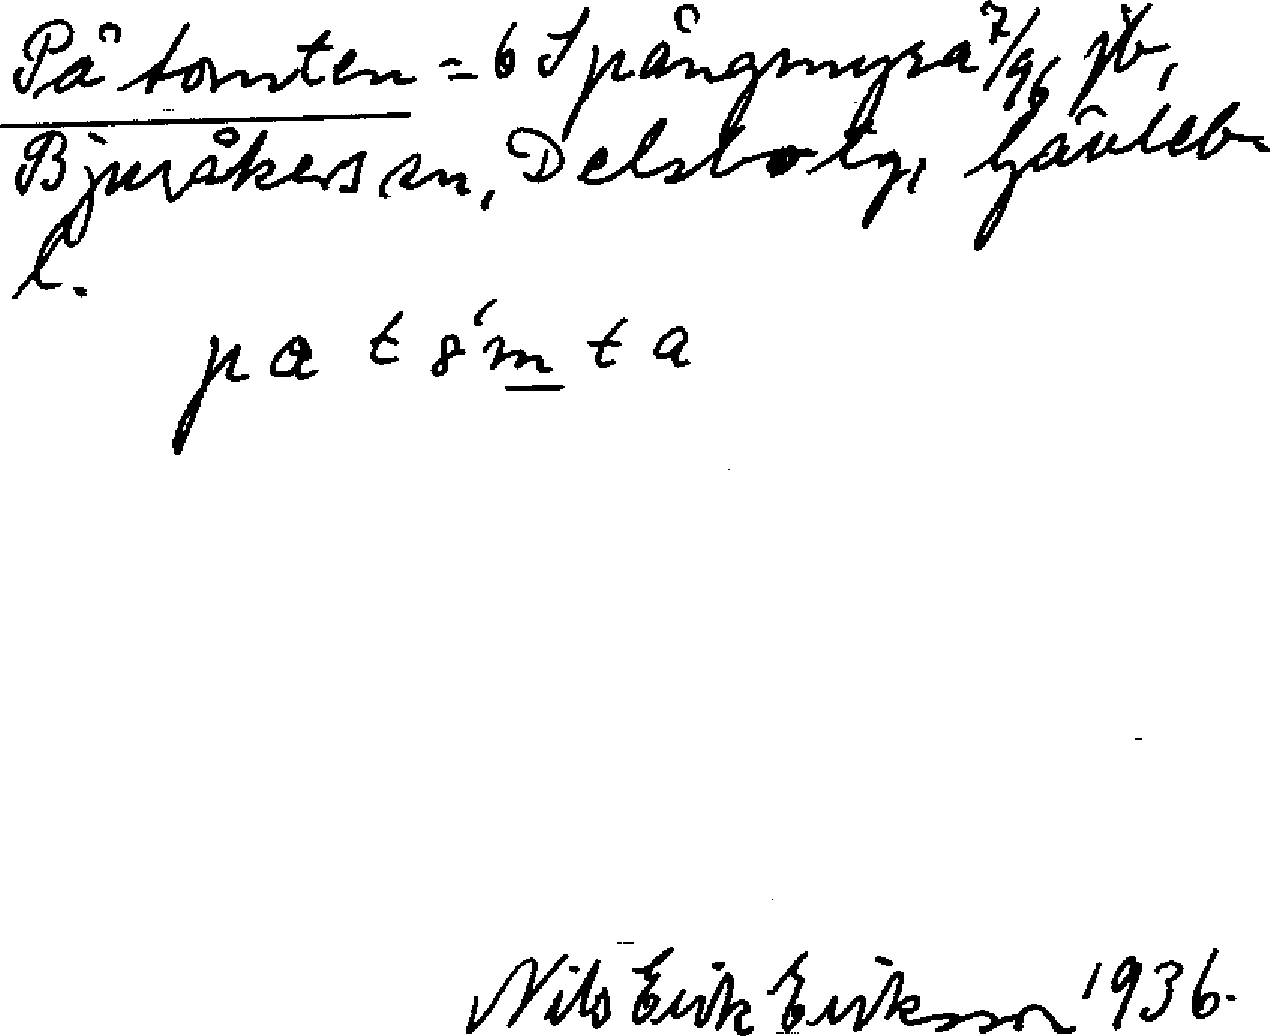 På tomten = 6 Spångmyra 7/96 jb,
Bjuråkers sn, Delsbo tg, Gävleb.
l.
pa t 8́m t a
Nils Erik Eriksson 1936.